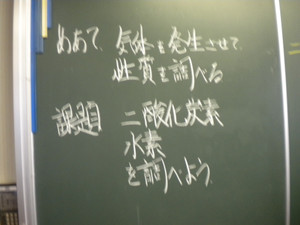 めあて、気体を発生させて、
性質を調べる
課題 二酸化炭素
水素
を調べよう